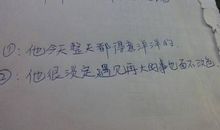 ①：他今天整天都得意洋洋的．
②：他很淡定遇见再大的事也面不改色